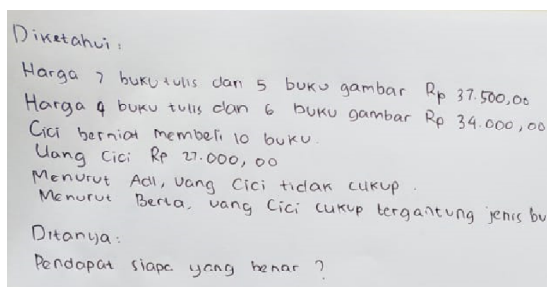 Diketahui :
Harga 7 buku tulis dan 5 buku gambar Rp 37.500,00
Harga 4 buku tulis dan 6 buku gambar Rp 34.000,00
Cici berniat membeli 10 buku.
Uang Cici Rp 27.000,00
Menurut Adi, uang Cici tidak cukup.
Menurut Berta, uang Cici cukup tergantung jenis bu
Ditanya :
Pendapat siapa yang benar ?